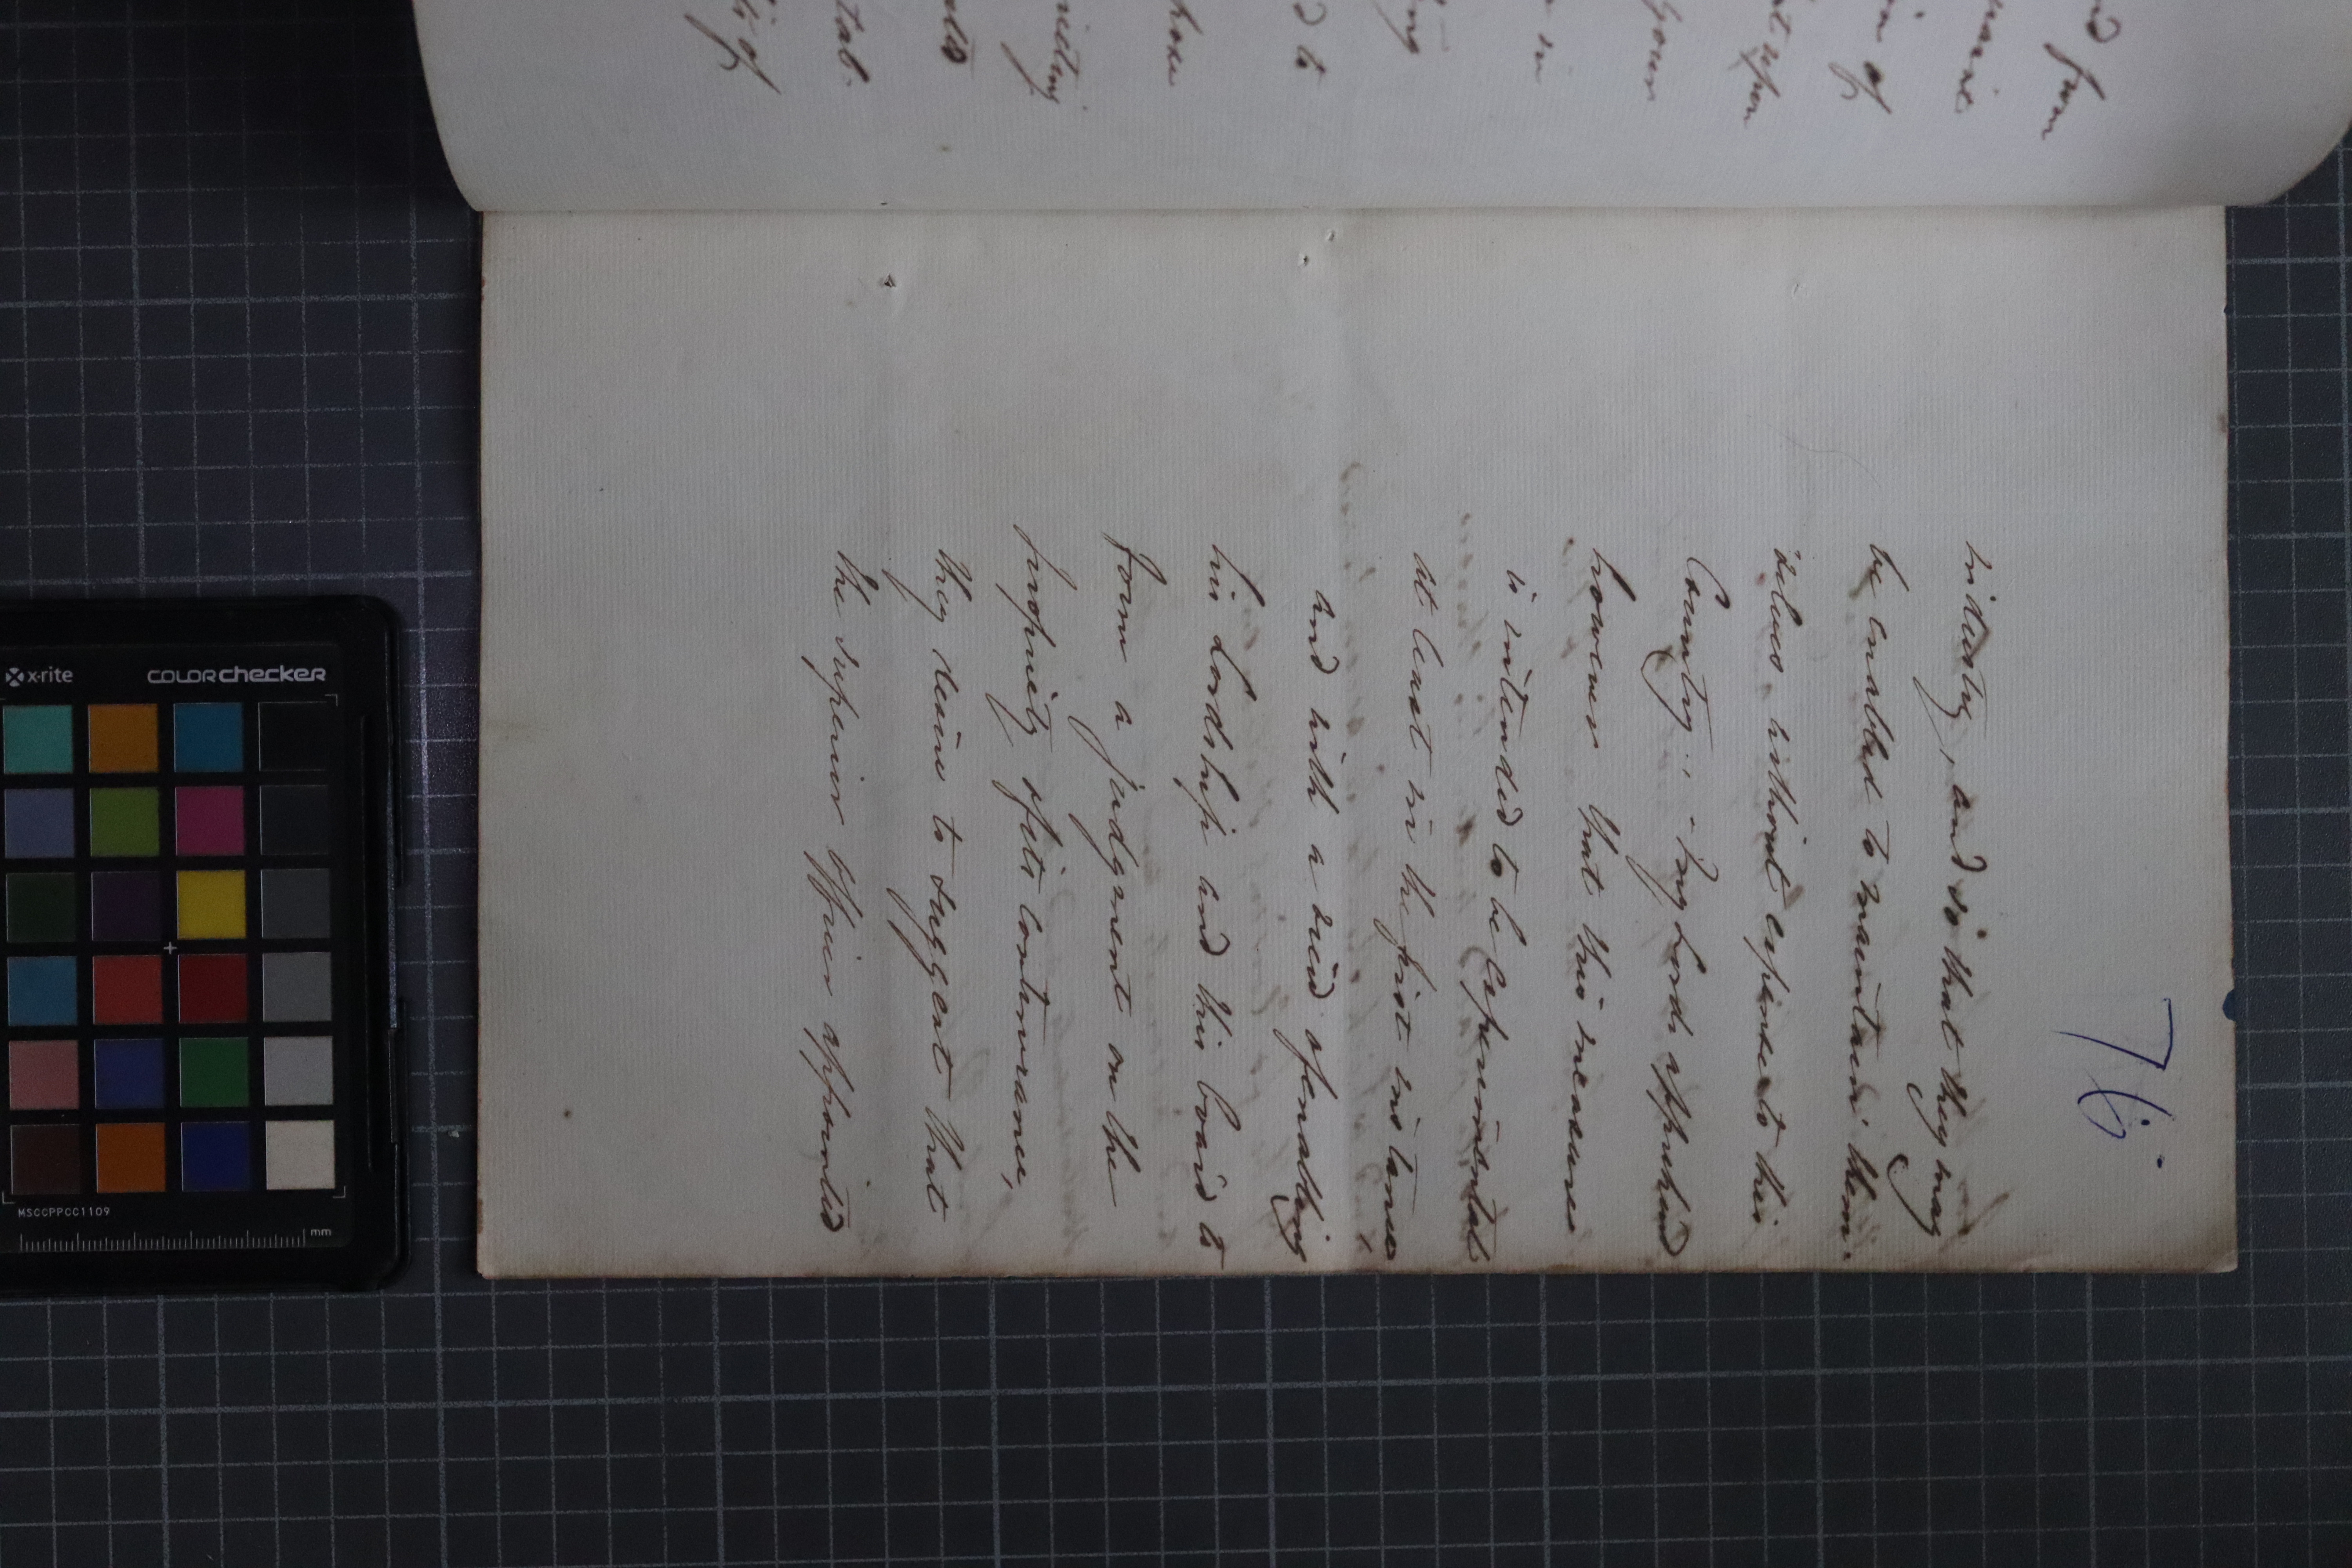 76.
industry, and so that they may
be enabled to maintain them-
selves without expense to this
Country. - My Lords apprehend
however that this measure
is intended to be experimental
at least in the first instance
and with a view of enabling
his Lordship and this board to
form a judgment on the
propriety of its continuance,
they desire to suggest that
the superior officer appointed
from
of
upon
in
to
of
x-rite
COLORchecker
MSCCPPCC1109
mm